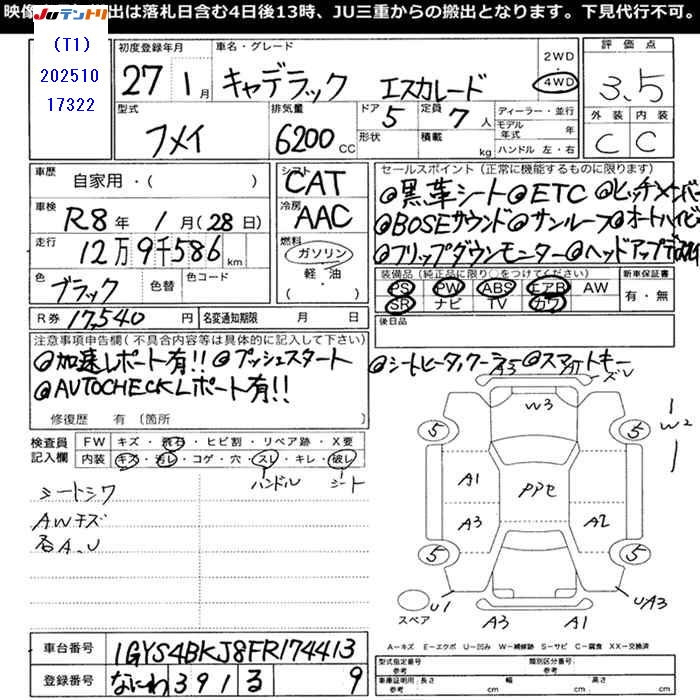 映像 出は落札日含む4日後13時、JU三重からの搬出となります。下見代行不可。
JUテントリ
(T1)
202510
17322
初度登録年月
27 1月
車名・グレード
キャデラック エスカレード
2WD
4WD
評価点
3.5
外装 内装
C C
型式
フメイ
排気量
6200 CC
ドア
5
形状
定員
7人
積載
kg
ディーラー・並行
モデル年式 年
ハンドル 左・右
車歴
自家用・( )
車検
R8年 1月(28日)
走行
12万9千586 km
色
ブラック
色替
色コード
R券 17,540円
名変通知期限 月 日
シフト
CAT
冷房
AAC
燃料
ガソリン
軽・油
( )
セールスポイント(正常に機能するものに限ります)
◎黒革シート◎ETC◎ヒッチメンバー
◎BOSEサウンド◎サンルーフ◎オートハイビ
◎フリップダウンモニター◎ヘッドアップ
装備品(純正品に限り○をつけてください)
PS PW ABS エアB AW
SR ナビ TV カワ
新車保証書
有・無
後日品
注意事項申告欄(不具合内容等は具体的に記入して下さい)
◎加速レポート有!!◎プッシュスタート
◎AUTOCHECKレポート有!!
◎シートヒータ/クーラー◎スマートキー
修復歴 有(箇所
検査員
記入欄
FW キズ・飛石・ヒビ割・リペア跡・X要
内装 キズ・汚レ・コゲ・穴・スレ・キレ・破レ
ハンドル
シート
シートシワ
AWキズ
各A、U
A3
W3
5
5
W2
A1
PPセ
A3
A2
5
5
スペア
U1
A3
A1
UA3
A=キズ E=エクボ U=凹み W=補修跡 S=サビ C=腐食 XX=交換済
車台番号
1GYS4BKJ8FR174413
登録番号
なにわ 391 る 9
型式指定番号
参考
類別区分番号
参考
車庫証明用
参考
長さ cm
幅 cm
高さ cm